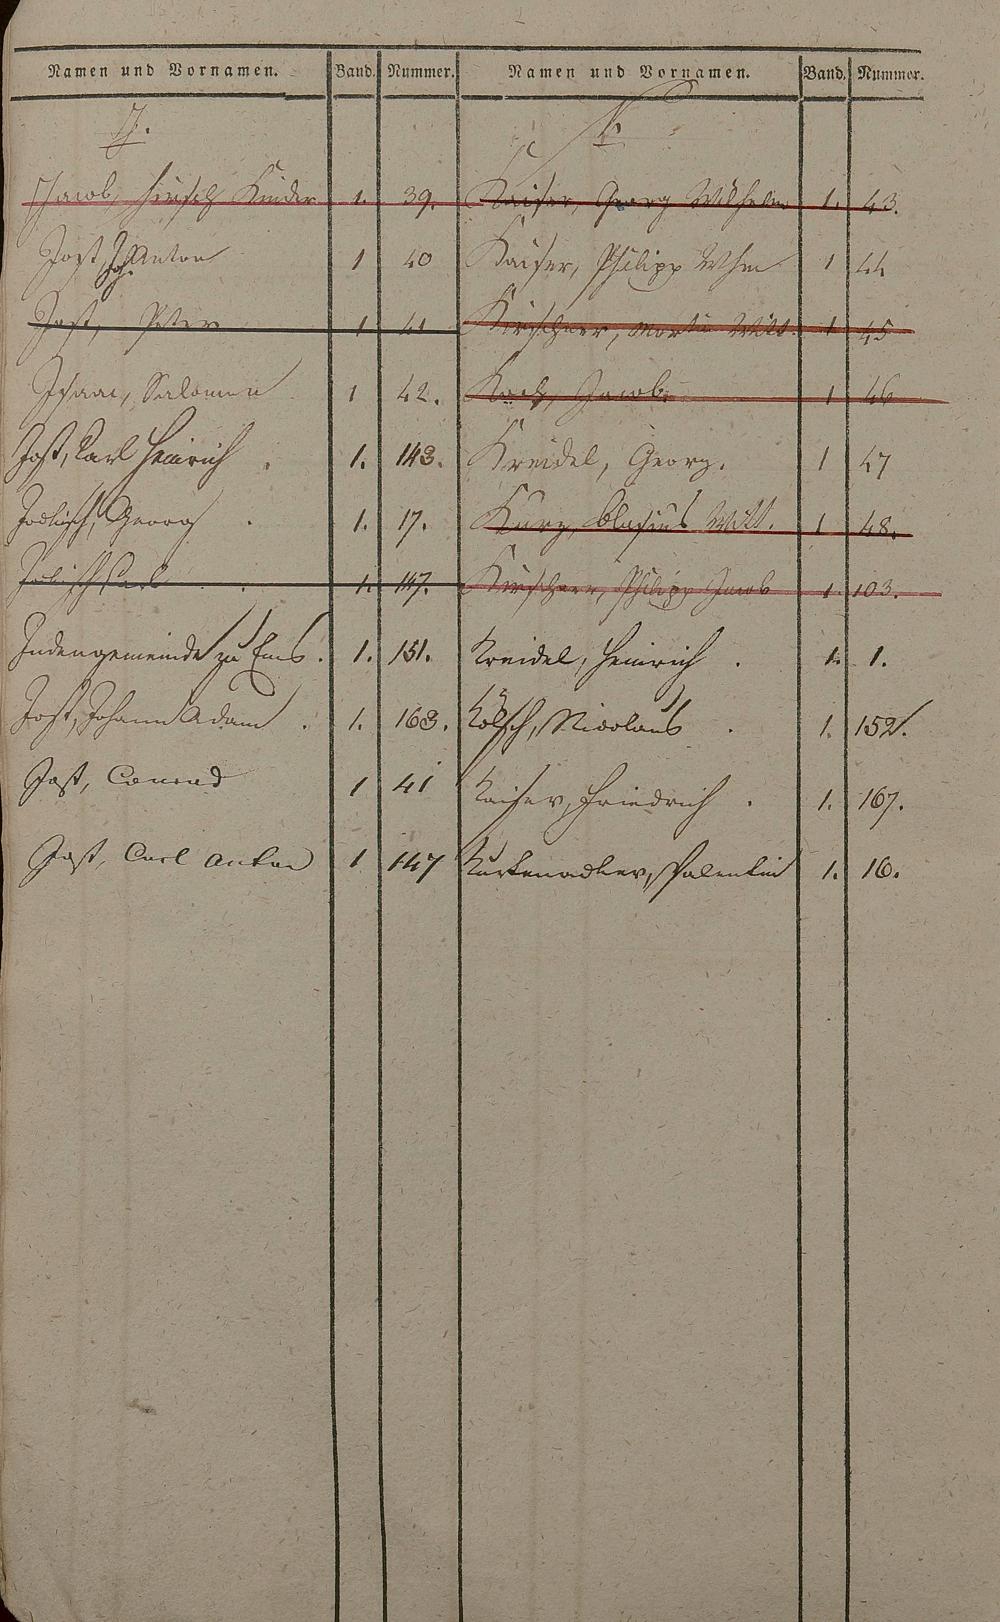 Namen und Vornamen. Band. Nummer. Namen und Vornamen. Band. Nummer.
J. K.
Jacob, Hirsch Kinder 1. 39.
Jost, Joh. Anton 1 40
Jost, Peter 1 41
Isaac, Salomon 1 42.
Jost, Karl Heinrich . 1. 143.
Georg . 1. 17.
1. 147.
Judengemeinde zu Ems. 1. 151.
Jost, Johann Adam . 1. 163.
Jost, Conrad 1 41
Jost, Carl Anton 1 147
Kaiser, Georg Wilhelm 1. 43.
Kaiser, Philipp Whm 1 44
Kirschner, Martin Witt. 1 45
Koch, Jacob. 1 46
Kreidel, Georg. 1 47
Kurz, Blasius Witt. 1 48.
Kirschner, Philipp Jacob 1. 103.
Kreidel, Heinrich . 1. 1.
Kölsch, Nicolaus . 1. 152.
Kaiser, Friedrich . 1. 167.
Valentin 1. 16.